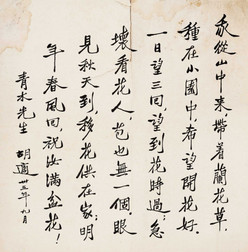 我從山中來,帶着蘭花草,
種在小園中,希望開花好.
一日望三回,望到花時過;急
壞看花人,苞也無一個.眼
見秋天到,移花供在家,明
年春風回,祝汝滿盆花!
青木先生 胡適 卅三年九月